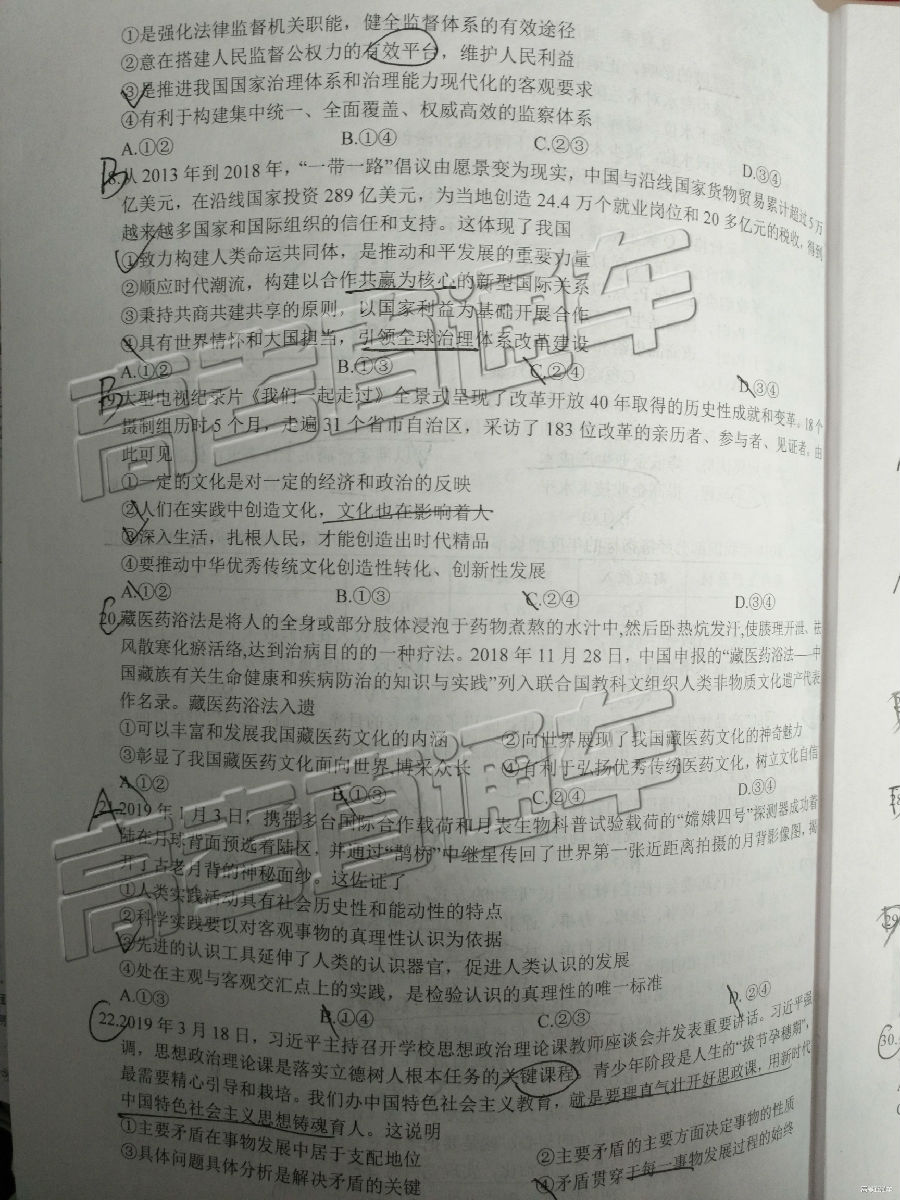 ①是强化法律监督机关职能，健全监督体系的有效途径
②意在搭建人民监督公权力的有效平台，维护人民利益
③是推进我国国家治理体系和治理能力现代化的客观要求
④有利于构建集中统一、全面覆盖、权威高效的监察体系
A.①② B.①④ C.②③ D.③④
B
18.从2013年到2018年，“一带一路”倡议由愿景变为现实，中国与沿线国家货物贸易累计超过5万
亿美元，在沿线国家投资289亿美元，为当地创造24.4万个就业岗位和20多亿元的税收，得到
越来越多国家和国际组织的信任和支持。这体现了我国
①致力构建人类命运共同体，是推动和平发展的重要力量
②顺应时代潮流，构建以合作共赢为核心的新型国际关系
③秉持共商共建共享的原则，以国家利益为基础开展合作
④具有世界情怀和大国担当，引领全球治理体系改革建设
A.①② B.①③ C.②④ D.③④
B
大型电视纪录片《我们一起走过》全景式呈现了改革开放40年取得的历史性成就和变革。18个
摄制组历时5个月，走遍31个省市自治区，采访了183位改革的亲历者、参与者、见证者。由
此可见
①一定的文化是对一定的经济和政治的反映
②人们在实践中创造文化，文化也在影响着人
③深入生活，扎根人民，才能创造出时代精品
④要推动中华优秀传统文化创造性转化、创新性发展
A.①② B.①③ C.②④ D.③④
20.藏医药浴法是将人的全身或部分肢体浸泡于药物煮熬的水汁中,然后卧热炕发汗,使腠理开泄、祛
风散寒化瘀活络,达到治病目的的一种疗法。2018年11月28日，中国申报的“藏医药浴法——中
国藏族有关生命健康和疾病防治的知识与实践”列入联合国教科文组织人类非物质文化遗产代表
作名录。藏医药浴法入遗
①可以丰富和发展我国藏医药文化的内涵 ②向世界展现了我国藏医药文化的神奇魅力
③彰显了我国藏医药文化面向世界,博采众长 ④有利于弘扬优秀传统医药文化，树立文化自信
A.①② B.①③ C.②④ D.③④
A
21.2019年1月3日，携带多台国际合作载荷和月表生物科普试验载荷的“嫦娥四号”探测器成功着
陆在月球背面预选着陆区，并通过“鹊桥”中继星传回了世界第一张近距离拍摄的月背影像图，揭
开了古老月背的神秘面纱。这佐证了
①人类实践活动具有社会历史性和能动性的特点
②科学实践要以对客观事物的真理性认识为依据
③先进的认识工具延伸了人类的认识器官，促进人类认识的发展
④处在主观与客观交汇点上的实践，是检验认识的真理性的唯一标准
A.①③ B.①④ C.②③ D.②④
22.2019年3月18日，习近平主持召开学校思想政治理论课教师座谈会并发表重要讲话。习近平强
调，思想政治理论课是落实立德树人根本任务的关键课程，青少年阶段是人生的“拔节孕穗期”，
最需要精心引导和栽培。我们办中国特色社会主义教育，就是要理直气壮开好思政课，用新时代
中国特色社会主义思想铸魂育人。这说明
①主要矛盾在事物发展中居于支配地位 ②主要矛盾的主要方面决定事物的性质
③具体问题具体分析是解决矛盾的关键 ④矛盾贯穿于每一事物发展过程的始终
高考直通车
高考直通车
30.